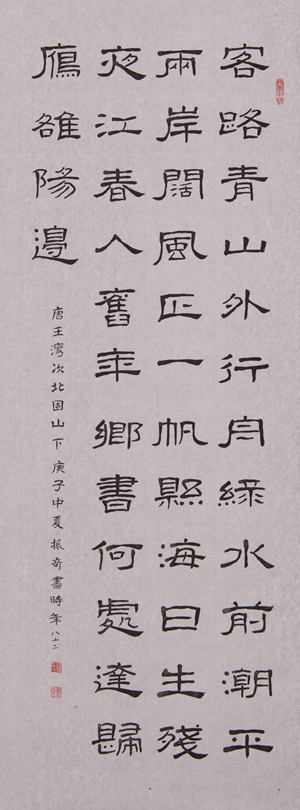 客路青山外行舟綠水前潮平
兩岸闊風正一帆懸海日生殘
夜江春入舊年鄉書何處達歸
鴈雒陽邊
唐王灣次北固山下庚子中夏振奇書時年八十二